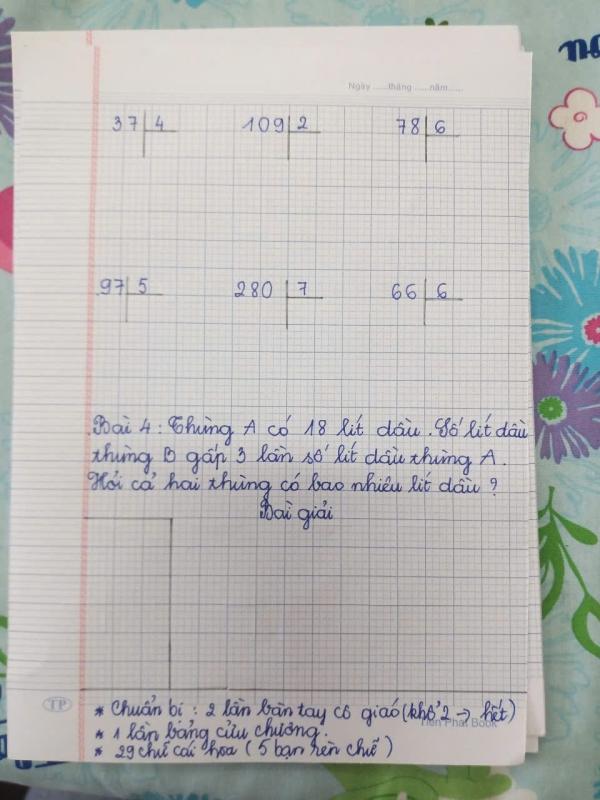 Ngày ......tháng ......năm......
37 4 109 2 78 6
97 5 280 7 66 6
Bài 4 : Thùng A có 18 lít dầu . Số lít dầu
thùng B gấp 3 lần số lít dầu thùng A .
Hỏi cả hai thùng có bao nhiêu lít dầu ?
Bài giải
TP
* Chuẩn bị : 2 lần bàn tay cô giáo (khổ 2 → hết)
Tiến Phát Book
* 1 lần bảng cửu chương .
* 29 chữ cái hoa ( 5 bạn rèn chữ )